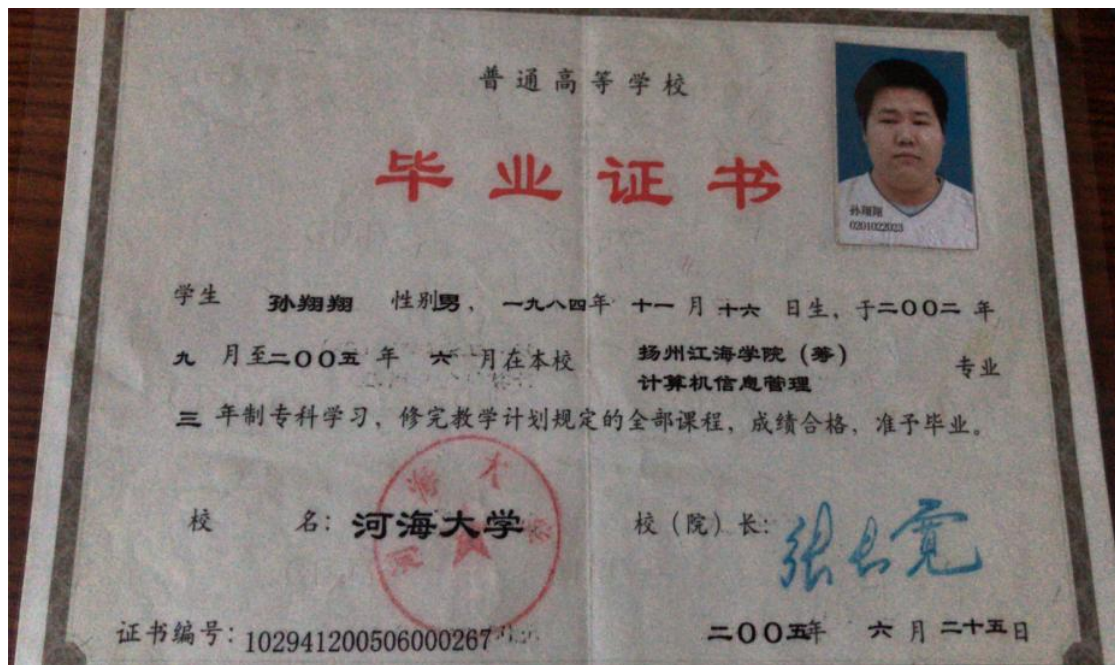 普通高等学校
毕业证书
孙翔翔
0201022023
学生 孙翔翔 性别男，一九八四年 十一月十六日生，于二00二年
九月至二00五年 六月在本校 扬州江海学院（筹）
计算机信息管理 专业
三年制专科学习，修完教学计划规定的全部课程，成绩合格，准予毕业。
校 名：河海大学 校（院）长：张长宽
河海大学
证书编号：102941200506000267 二00五年 六月二十五日